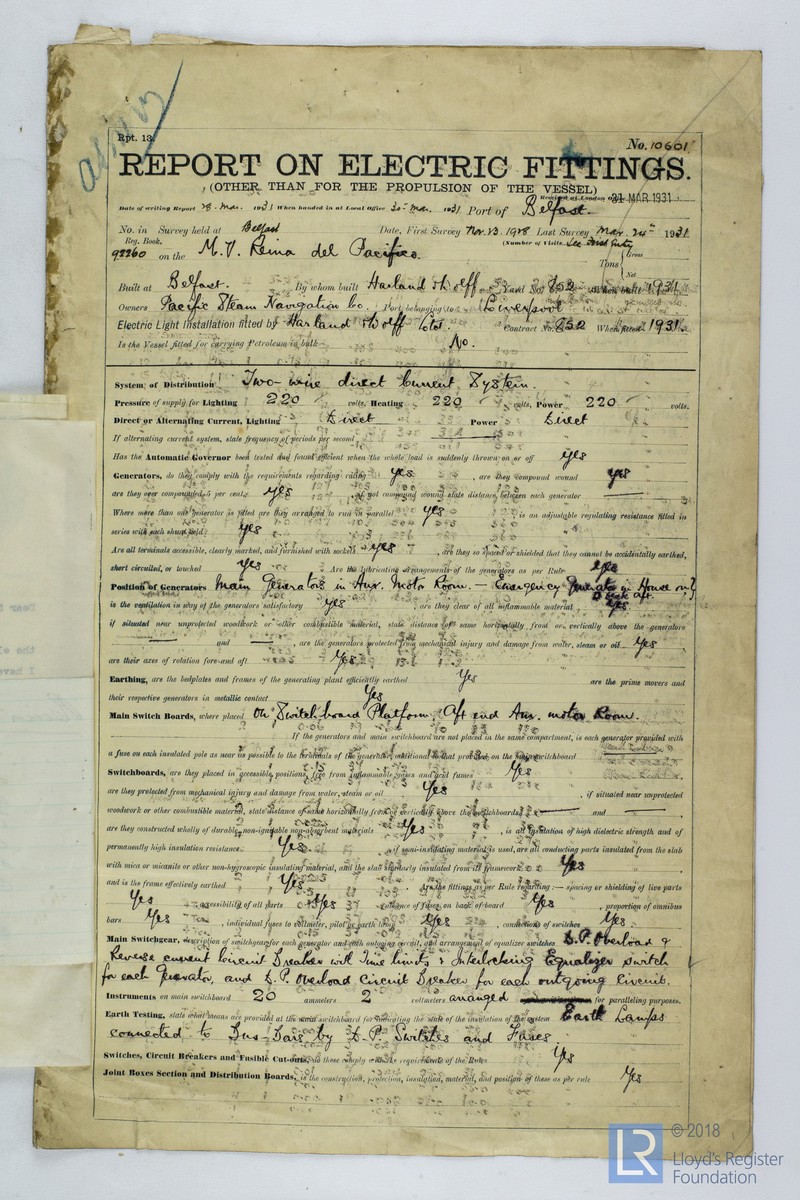 Rpt. 13.
No. 10601
REPORT ON ELECTRIC FITTINGS.
(OTHER THAN FOR THE PROPULSION OF THE VESSEL)
Received at London Office 31 MAR 1931
Date of writing Report 28 Mar. 1931 When handed in at Local Office 30 Mar. 1931 Port of Belfast.
No. in Survey held at Belfast Date, First Survey Nov. 23. 1928 Last Survey Mar. 24th 1931
Reg. Book. (Number of Visits See First Entry
92260 on the M.V. Reina del Pacifico. Tons Gross Net
Built at Belfast. By whom built Harland & Wolff Yard No. 852 When built 1931
Owners Pacific Steam Navigation Co. Port belonging to Liverpool
Electric Light Installation fitted by Harland & Wolff Ltd. Contract No. 852 When fitted 1931.
Is the Vessel fitted for carrying Petroleum in bulk No.
System of Distribution Two-wire direct Current System.
Pressure of supply for Lighting 220 volts, Heating 220 volts, Power 220 volts.
Direct or Alternating Current, Lighting Direct Power Direct
If alternating current system, state frequency of periods per second
Has the Automatic Governor been tested and found efficient when the whole load is suddenly thrown on or off Yes
Generators, do they comply with the requirements regarding rating Yes, are they compound wound Yes
are they over compounded 5 per cent. Yes, if not compound wound state distance between each generator
Where more than one generator is fitted are they arranged to run in parallel Yes, is an adjustable regulating resistance fitted in
series with each shunt field Yes
Are all terminals accessible, clearly marked, and furnished with sockets Yes, are they so spaced or shielded that they cannot be accidentally earthed,
short circuited, or touched Yes Are the lubricating arrangements of the generators as per Rule Yes
Position of Generators Main Generators in Aux. Motor Room. — Emergency Generator in House on Deck Aft.
is the ventilation in way of the generators satisfactory Yes, are they clear of all inflammable material Yes
if situated near unprotected woodwork or other combustible material, state distance of same horizontally from or vertically above the generators
— and —, are the generators protected from mechanical injury and damage from water, steam or oil Yes
are their axes of rotation fore and aft Yes
Earthing, are the bedplates and frames of the generating plant efficiently earthed Yes are the prime movers and
their respective generators in metallic contact Yes
Main Switch Boards, where placed On Switchboard Platform, Aft end Aux. motor Room.
If the generators and main switchboard are not placed in the same compartment, is each generator provided with
a fuse on each insulated pole as near as possible to the terminals of the generator, additional to that provided on the main switchboard
Switchboards, are they placed in accessible positions, free from inflammable gases and acid fumes Yes
are they protected from mechanical injury and damage from water, steam or oil Yes, if situated near unprotected
woodwork or other combustible material, state distance of same horizontally from or vertically above the switchboards — and —,
are they constructed wholly of durable, non-ignitable non-absorbent materials Yes, is all insulation of high dielectric strength and of
permanently high insulation resistance Yes, if semi-insulating material is used, are all conducting parts insulated from the slab
with mica or micanite or other non-hygroscopic insulating material, and the slab similarly insulated from its framework Yes
and is the frame effectively earthed Yes Are the fittings as per Rule regarding:— spacing or shielding of live parts
Yes, accessibility of all parts Yes, absence of fuses on back of board Yes, proportion of omnibus
bars Yes, individual fuses to voltmeter, pilot or earth lamp Yes, connections of switches Yes.
Main Switchgear, description of switchgear for each generator and each outgoing circuit, and arrangement of equalizer switches D.P. Overload &
Reverse current Circuit Breaker with Time limits & Interlocking Equalizer switch
for each Generator, and D.P. Overload Circuit Breaker for each outgoing Circuit.
Instruments on main switchboard 20 ammeters 2 voltmeters arranged for paralleling purposes.
Earth Testing, state what means are provided at the main switchboard for indicating the state of the insulation of the system Earth Lamps
connected to Bus-Bars by D.P. Switches and Fuses.
Switches, Circuit Breakers and Fusible Cut-outs, do these comply with the requirements of the Rules Yes
Joint Boxes Section and Distribution Boards, is the construction, protection, insulation, material, and position of these as per rule Yes
LR
© 2018
Lloyd's Register
Foundation